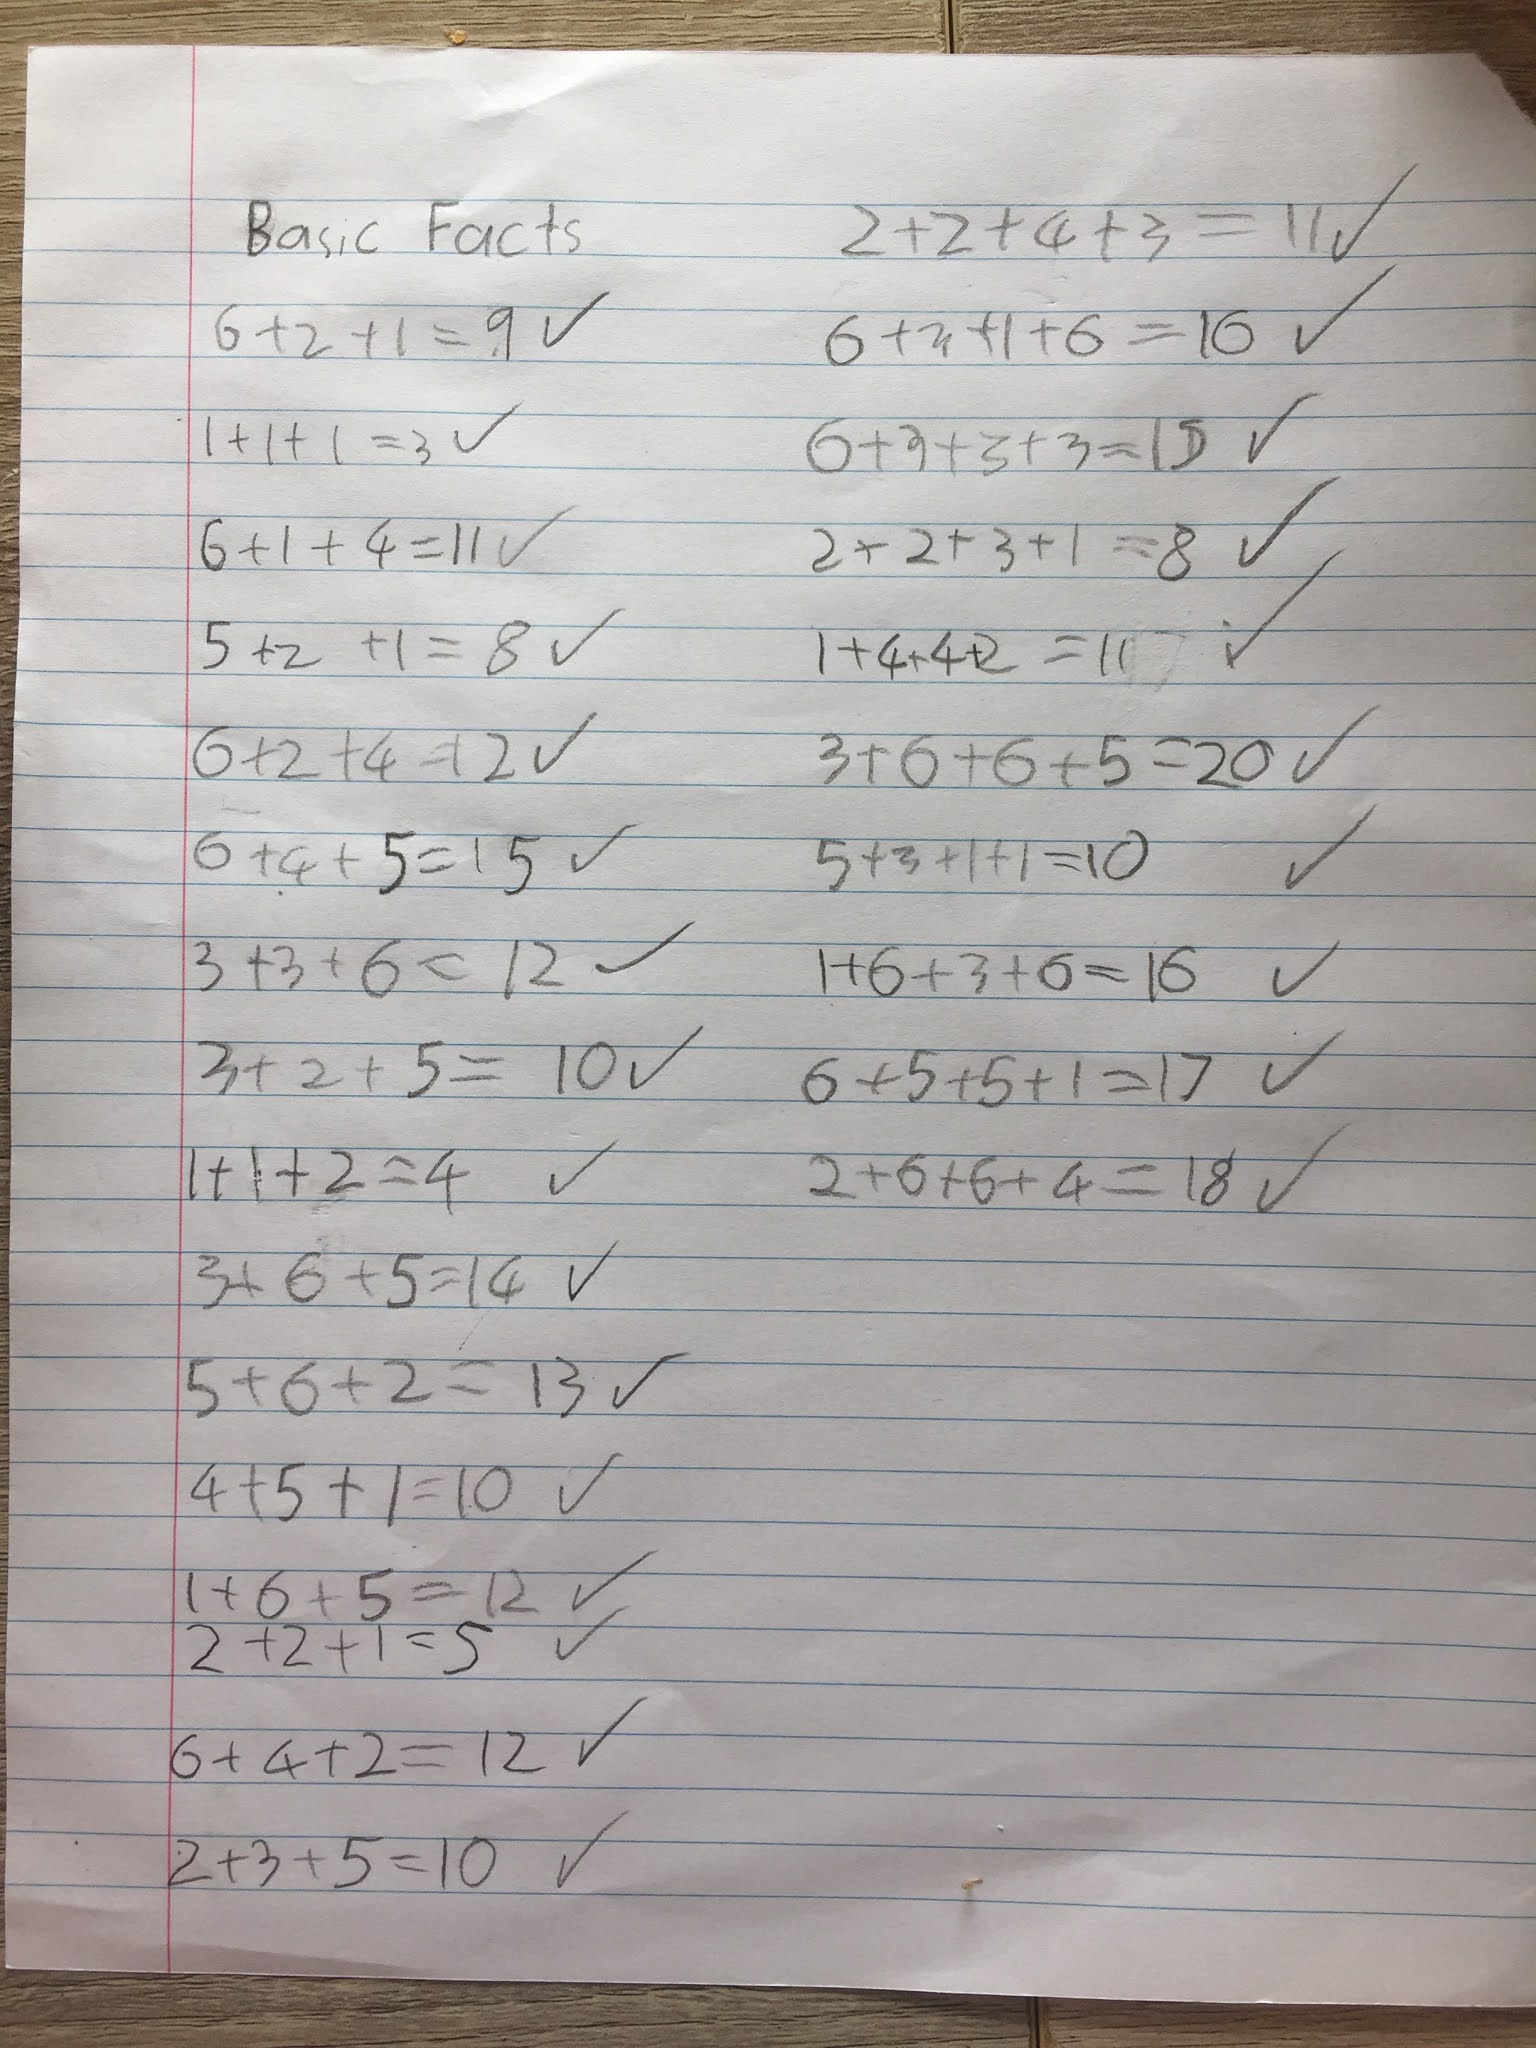 Basic Facts
6+2+1=9✓
1+1+1=3✓
6+1+4=11✓
5+2+1=8✓
6+2+4=12✓
6+4+5=15✓
3+3+6=12✓
3+2+5=10✓
1+1+2=4✓
3+6+5=14✓
5+6+2=13✓
4+5+1=10✓
1+6+5=12✓
2+2+1=5✓
6+4+2=12✓
2+3+5=10✓
2+2+4+3=11✓
6+3+1+6=16✓
6+3+3+3=15✓
2+2+3+1=8✓
1+4+4+2=11✓
3+6+6+5=20✓
5+3+1+1=10✓
1+6+3+6=16✓
6+5+5+1=17✓
2+6+6+4=18✓